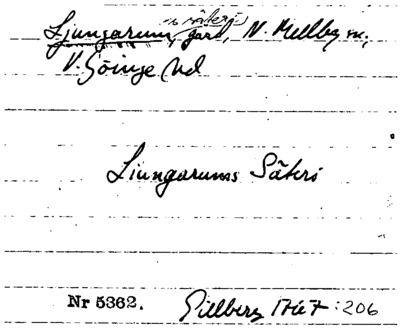 n. säteri
Ljungarum, gård, N. Mellby sn,
V. Göinge hd
Liungarums Säteri
Nr 5362. Gillberg 1767 : 206